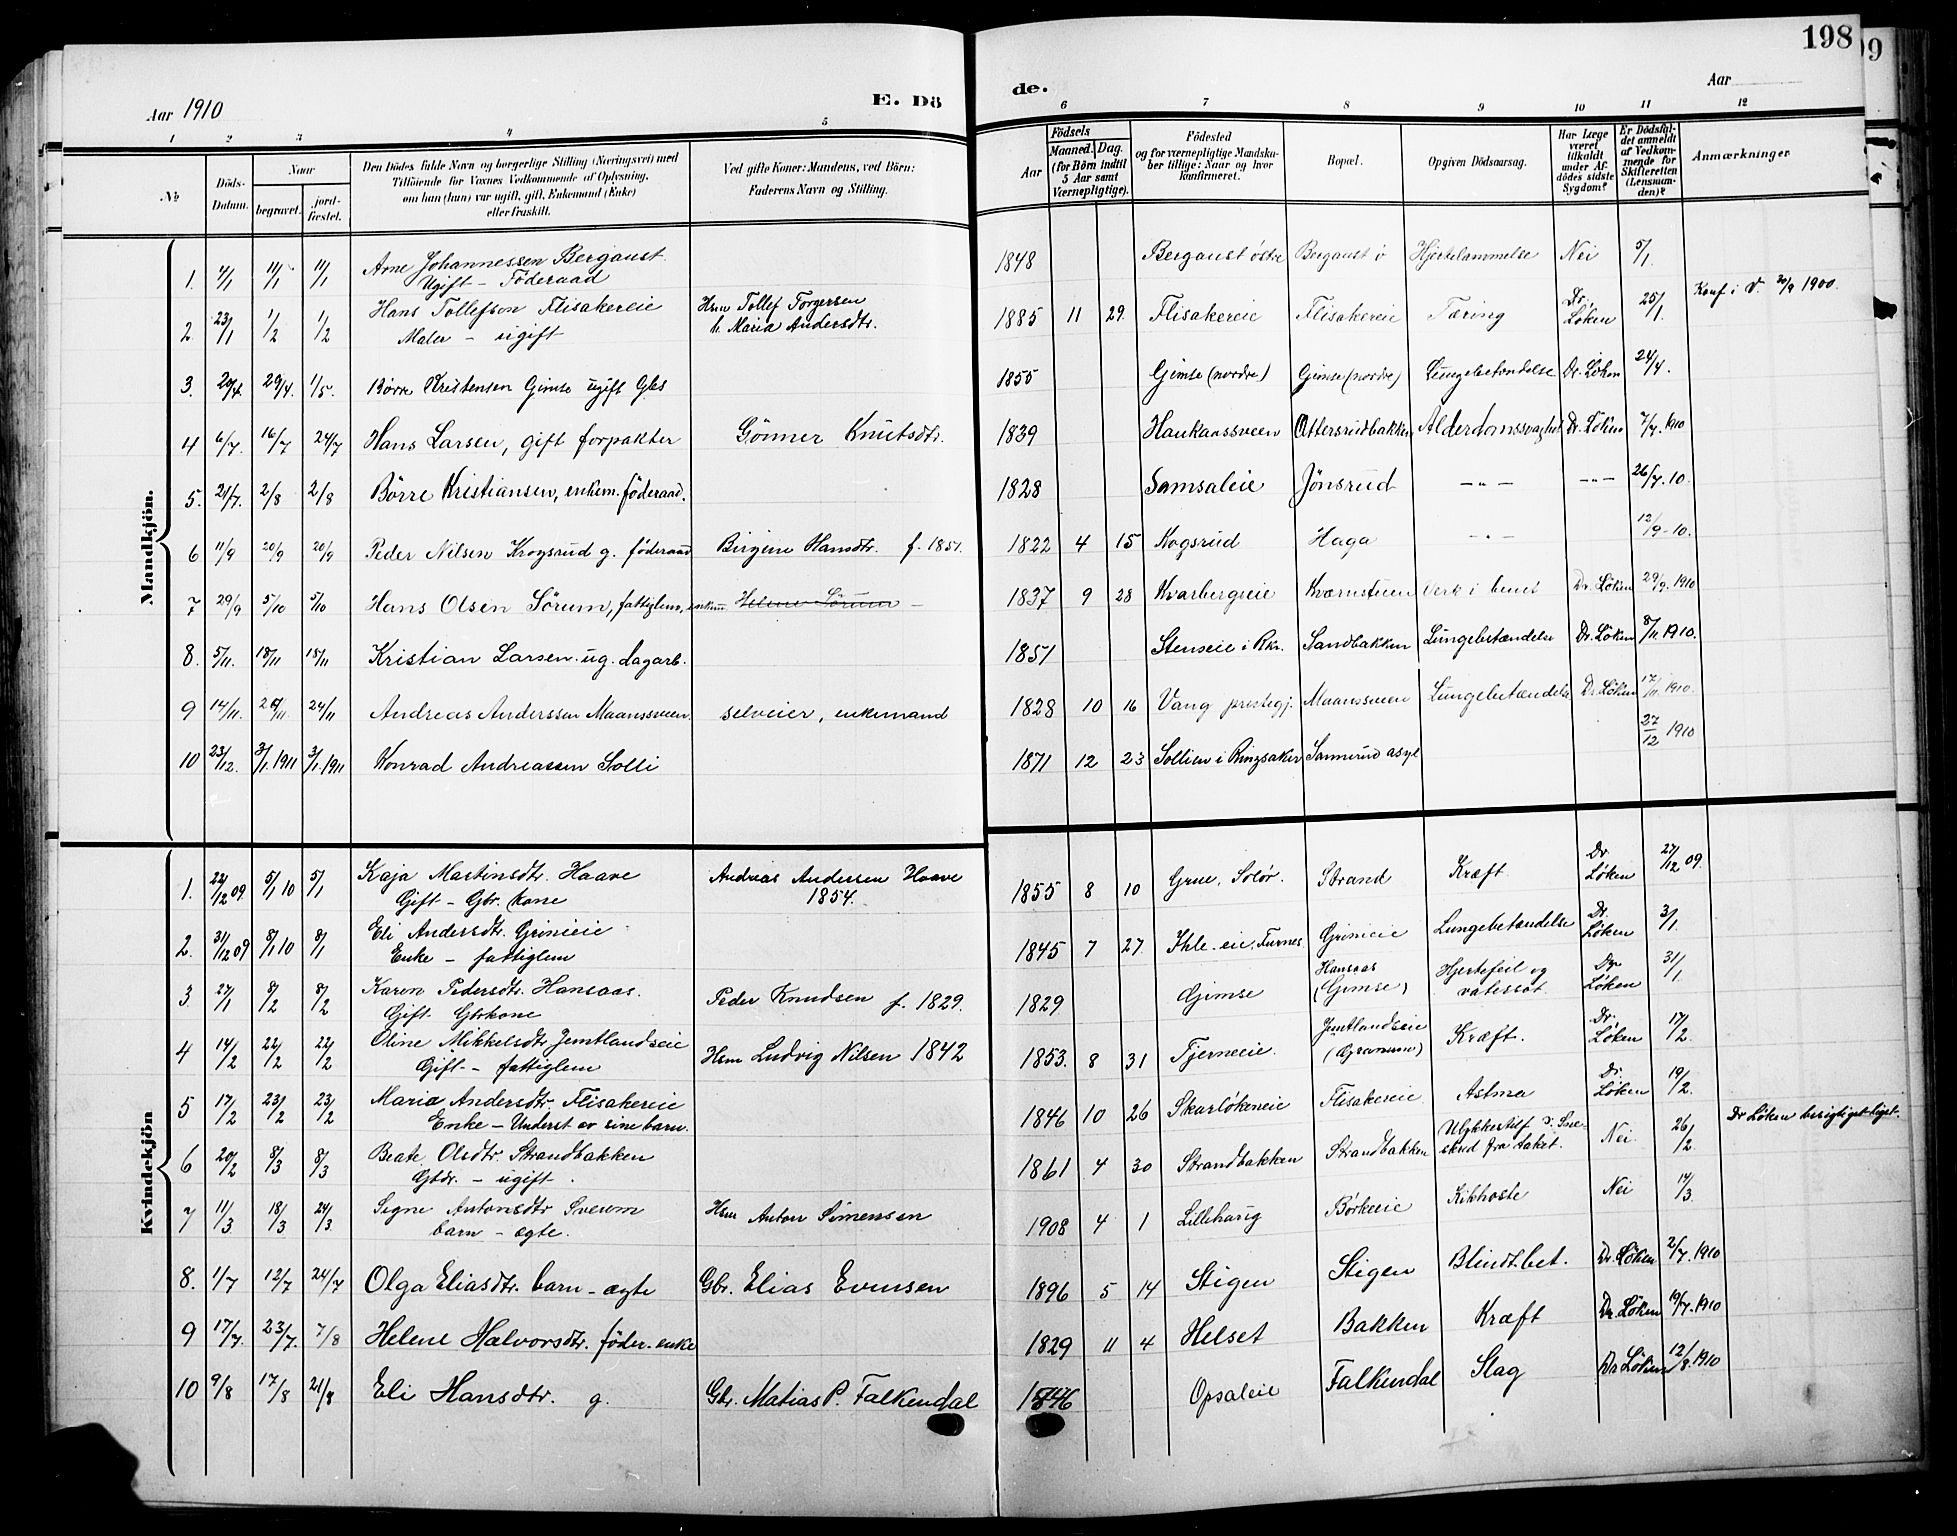 198
9
Aar 1910
E. Dö
de.
Aar
1 2 3 4 5 6 7 8 9 10 11 12
No
Döds-Datum.
Naar
begravet.
jord-fæstet.
Den Dödes fulde Navn og borgerlige Stilling (Næringsvei) med
Tilföiende for Voxnes Vedkommende af Oplysning,
om han (hun) var ugift, gift, Enkemand (Enke)
eller fraskilt.
Ved gifte Koner: Mandens, ved Börn:
Faderens Navn og Stilling.
Födsels
Aar
Maaned. Dag.
(for Börn indtil
5 Aar samt
Værnepligtige).
Födested
og for værnepligtige Mandska-
ber tillige: Naar og hvor
konfirmeret.
Bopæl.
Opgiven Dödsaarsag.
Har Læge
været
tilkaldt
under Af-
dödes sidste
Sygdom?
Er Dödsfal-
det anmeldt
af Vedkom-
mende for
Skifteretten
(Lensman-
den)?
Anmærkninger
Mandkjön.
1. 4/1 11/1 11/1 Arne Johannessen Bergaust 1848 Bergaust östre Bergaust ö Hjertelammelse Nei 5/1.
Ugift - Föderaad
2. 23/1 1/2 1/2 Hans Tollefsøn Flisakereie Hsm Tollef Torgersen 1885 11 29. Flisakereie Flisakereie Tæring Dr. Løken 25/1. Konf i V. 30/9 1900.
Maler - ugift h. Maria Andersdtr.
3. 20/4 29/4. 1/5. Børre Kristensen Gimse ugift Gbs 1855 Gimse (nordre) Gimse (nordre) Lungebetændelse Dr. Løken 24/4.
4 6/7. 16/7 24/7 Hans Larsen, gift forpakter Gönner Knutsdtr. 1839 Haukaassveen Ottersrudbakken Alderdomssvaghet Dr. Löken 7/7. 1910
5. 21/7. 2/8 2/8 Börre Kristiansen, enkem. föderaad. 1828 Samsaleie Jönsrud -"- -"- 26/7. 10.
6 11/9 20/9 20/9 Peder Nilsen Krogsrud g. föderaad Birgine Hansdtr. f. 1851. 1822 4 15 Kogsrud Haga -"- 12/9-10.
7 29/9 5/10 5/10 Hans Olsen Sörum, fattiglem, enkem Helene Sörum - 1837 9 28 Kvarbergeie Kværnstuen Verk i benet Dr. Löken 29/9. 1910
8. 5/11. 18/11 18/11 Kristian Larsen. ug. dagarb. 1851 Stenseie i Rkr. Sandbakken Lungebetændelse Dr. Löken 8/11 1910.
9 14/11. 24/11. 24/11 Andreas Anderssen Maanssveen. selveier, enkemand 1828 10 16 Vang prestegj. Maanssveen Lungebetændelse Dr. Löken 17/11 1910.
10 23/12. 3/1. 1911 3/1. 1911 Konrad Andreassen Solli 1871 12 23 Sollien i Ringsaker Sannerud asyl 27/12 1910
Kvindekjön
1. 22/12 09. 5/1 10 5/1 Kaja Martinsdtr. Haave Andreas Andersen Haave 1855 8 10 Grue, Solør. Strand Kræft. Dr Løken 27/12 09.
Gift - Gbr. kone 1854.
2. 31/12 09 8/1 10 8/1 Eli Andersdtr. Grinieie 1845 7 27 Ihle-eie, Furnes. Grinieie Lungebetændelse Dr. Løken 3/1.
Enke - fattiglem
3 27/1 8/2 8/2 Karen Pedersdtr. Hansaas. Peder Knudsen f. 1829. 1829 Gimse Hansaas (Gimse) Hjertefeil og vatersot. Dr Løken 31/1.
Gift. Gbrkone
4 14/2 22/2 22/2 Oline Mikkelsdtr Jemtlandseie Hsm Ludvig Nilsen 1842 1853. 8 31 Tjerneeie. Jemtlandseie Kræft. Dr. Løken 17/2.
Gift - fattiglem
5 17/2 23/2 23/2 Maria Andersdtr. Flisakereie 1846 10 26 Skarløkeneie Flisakereie Astma Dr. Løken 19/2.
Enke - Underst av sine barn.
6 20/2 8/3 8/3 Beate Olsdtr. Strandbakken 1861 4 30 Strandbakken Strandbakken Ulykkestilf v. Sne-skred fra taket. Nei 26/2 Dr Løken besigtiget liget.
Gbdr. - ugift.
7 11/3 18/3 24/3. Signe Antonsdtr Sveum Hsm Anton Simensen 1908 4 1 Lillehaug Börkeeie Kikhoste Nei 14/3.
barn - ægte.
8. 1/7 12/7 24/7 Olga Eliasdtr. barn - ægte Gbr. Elias Evensen 1896 5 14 Stigen Stigen Blindt.bet. Dr. Löken 2/7. 1910
9 17/7. 23/7. 7/8 Helene Halvorsdtr. föder. enke 1829 11 4 Helset Bakken Kræft Dr. Löken 19/7. 1910
10 9/8 17/8 21/8 Eli Hansdtr. g. Gbr. Matias P. Falkendal 1846 Opsaleie Falkendal Slag Dr Löken 12/8. 1910